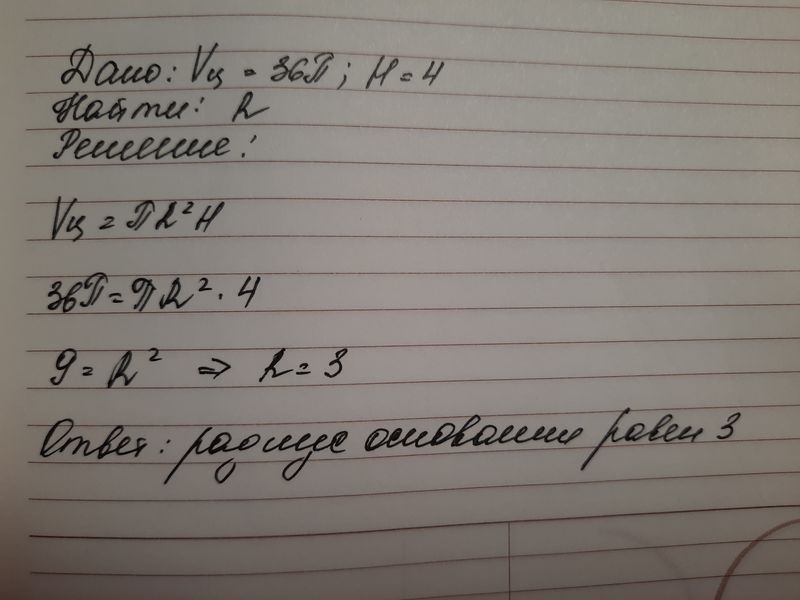 Дано: Vц = 36π; H = 4
Найти: R
Решение:
Vц = πR²H
36π = πR² · 4
9 = R² ⇒ R = 3
Ответ: радиус основания равен 3